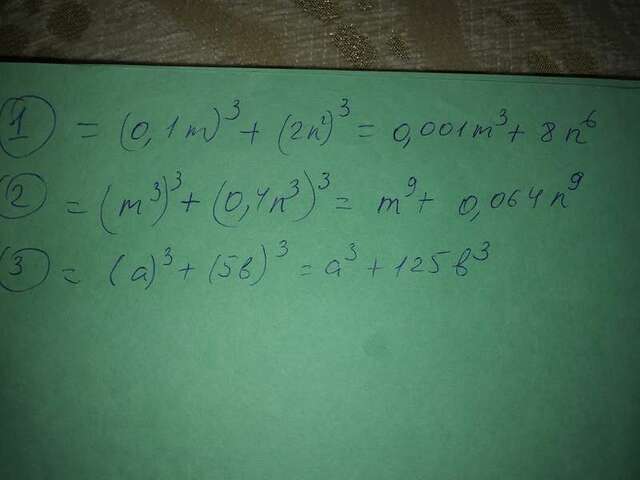 1 = (0,1m)³ + (2n²)³ = 0,001m³ + 8n⁶
2 = (m³)³ + (0,4n³)³ = m⁹ + 0,064n⁹
3 = (a)³ + (5в)³ = a³ + 125в³